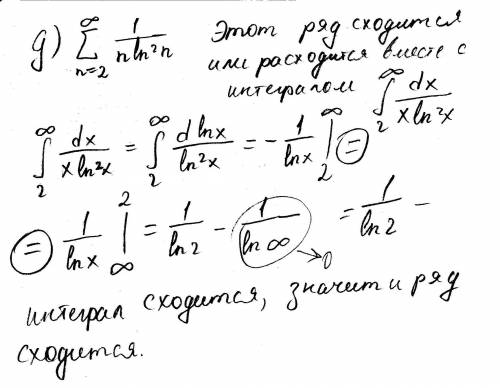 д) ∑_{n=2}^{∞} 1/(n ln²n) Этот ряд сходится
или расходится вместе с
интегралом ∫_{2}^{∞} dx/(x ln²x)
∫_{2}^{∞} dx/(x ln²x) = ∫_{2}^{∞} d lnx/ln²x = - 1/lnx |_{2}^{∞} =
= 1/lnx |_{∞}^{2} = 1/ln2 - 1/ln∞ → 0 = 1/ln2 -
интеграл сходится, значит и ряд
сходится.